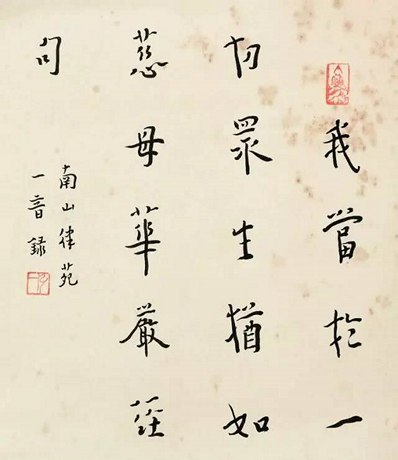 我當於一
切眾生猶如
慈母華嚴經
句
南山律苑
一音録